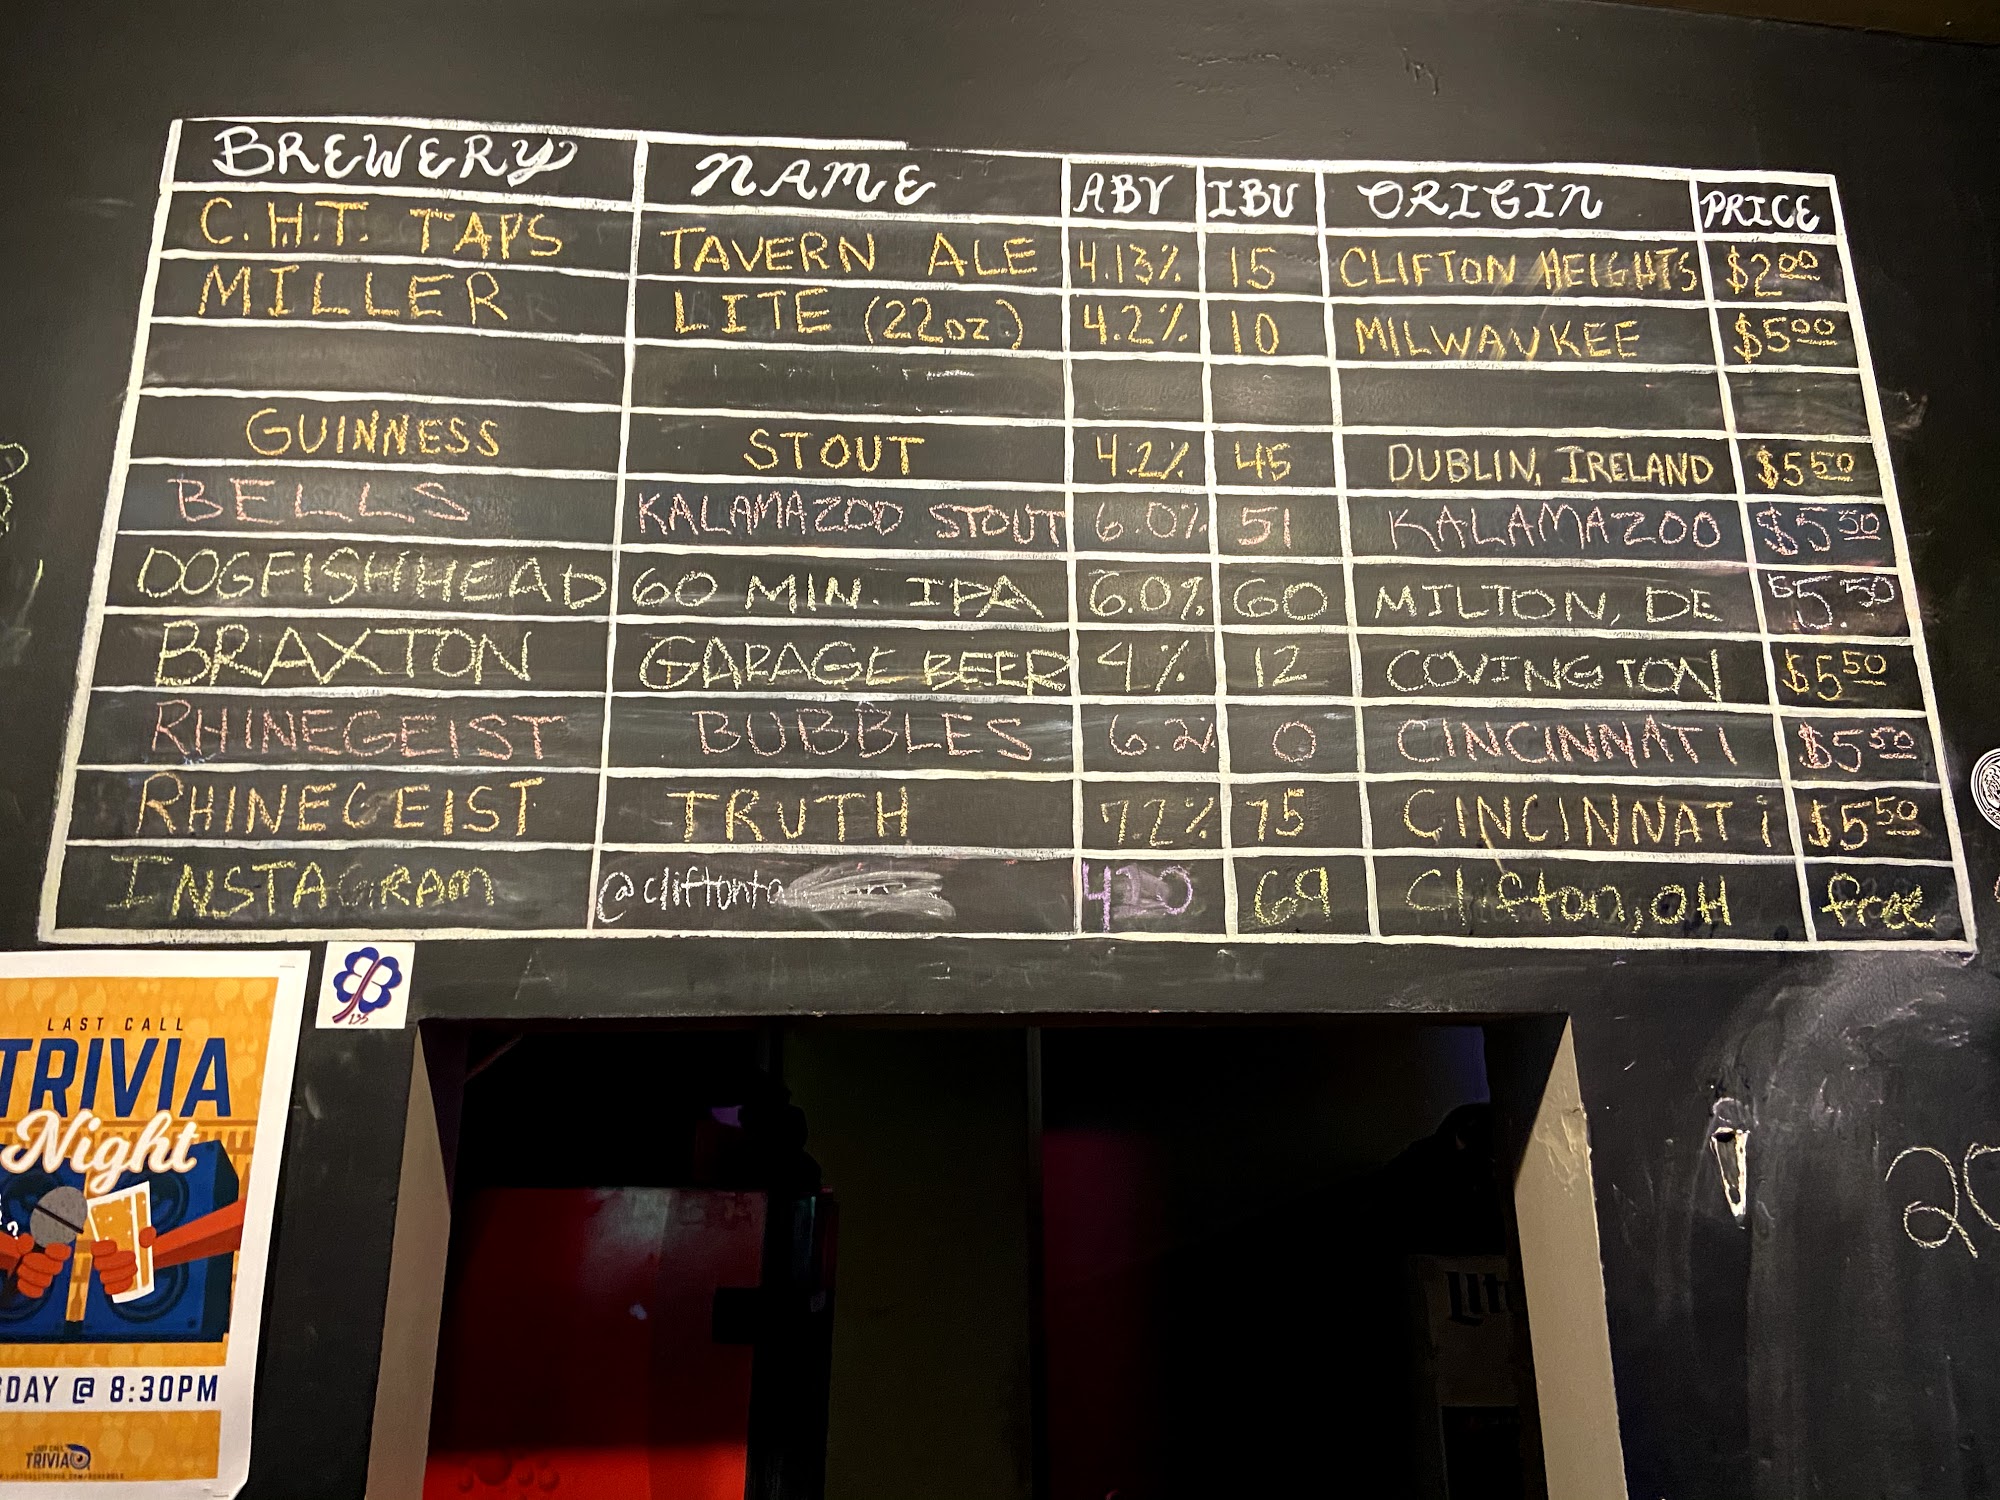 BREWERY NAME ABV IBU ORIGIN PRICE
C.H.T. TAPS TAVERN ALE 4.13% 15 CLIFTON HEIGHTS $2.00
MILLER LITE (22oz) 4.2% 10 MILWAUKEE $5.00
GUINNESS STOUT 4.2% 45 DUBLIN, IRELAND $5.50
BELLS KALAMAZOO STOUT 6.0% 51 KALAMAZOO $5.50
DOGFISHHEAD 60 MIN. IPA 6.0% 60 MILTON, DE $5.50
BRAXTON GARAGE BEER 4% 12 COVINGTON $5.50
RHINEGEIST BUBBLES 6.2% 0 CINCINNATI $5.50
RHINEGEIST TRUTH 7.2% 75 CINCINNATi $5.50
INSTAGRAM @cliftonta 420 69 Clifton, OH free
LAST CALL
TRIVIA
Night
DAY @ 8:30PM
LAST CALL
TRIVIA